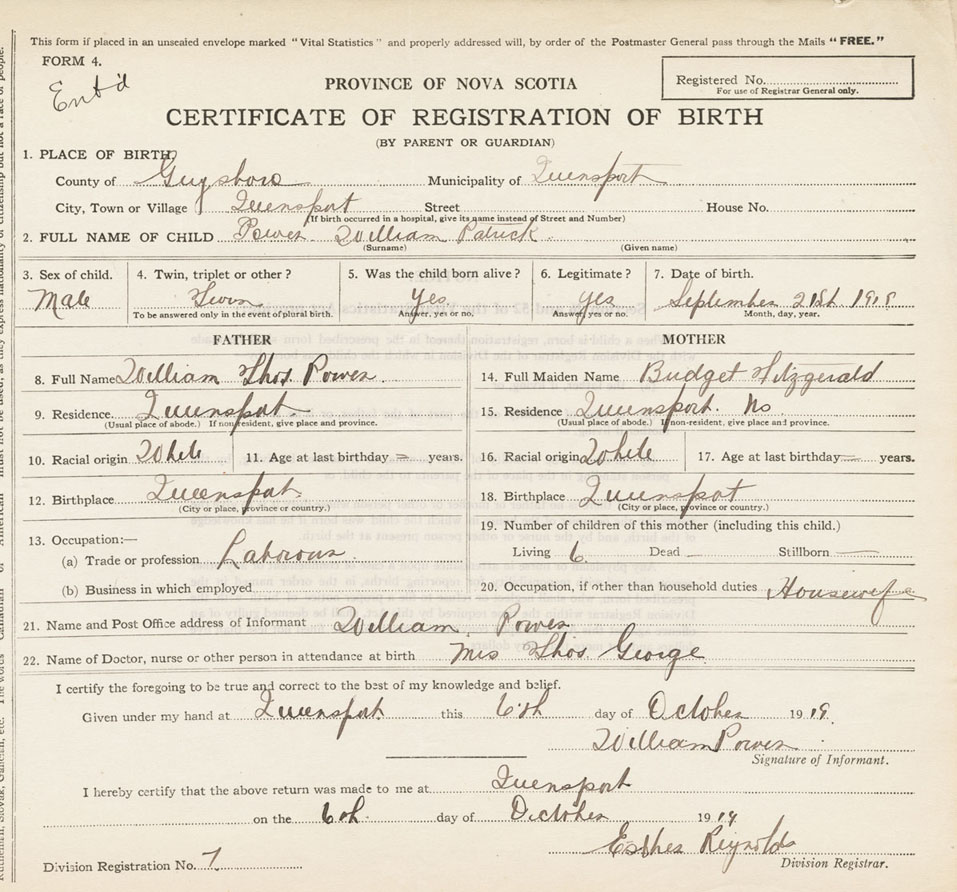 This form if placed in an unsealed envelope marked "Vital Statistics" and properly addressed will, by order of the Postmaster General pass through the Mails "FREE."
FORM 4.
Ent'd
PROVINCE OF NOVA SCOTIA
Registered No.
For use of Registrar General only.
CERTIFICATE OF REGISTRATION OF BIRTH
(BY PARENT OR GUARDIAN)
1. PLACE OF BIRTH?
County of Guysboro Municipality of Queensport
City, Town or Village Queensport Street House No.
(If birth occurred in a hospital, give its name instead of Street and Number)
2. FULL NAME OF CHILD Power William Patrick
(Surname) (Given name)
3. Sex of child. 4. Twin, triplet or other? 5. Was the child born alive? 6. Legitimate? 7. Date of birth.
Male Yes Yes September 21st
To be answered only in the event of plural birth. Answer, yes or no. Answer, yes or no. Month, day, year.
FATHER MOTHER
8. Full Name William Thos. Power 14. Full Maiden Name Fitzgerald
9. Residence. Queensport 15. Residence Queensport. NS
(Usual place of abode.) If non-resident, give place and province. (Usual place of abode.) If non-resident, give place and province.
10. Racial origin White 11. Age at last birthday years. 16. Racial origin White 17. Age at last birthday years.
12. Birthplace Queensport 18. Birthplace Queensport
(City or place, province or country.) (City or place, province or country.)
19. Number of children of this mother (including this child.)
13. Occupation:—
(a) Trade or profession Living 6 Dead — Stillborn —
(b) Business in which employed 20. Occupation, if other than household duties Housewife
21. Name and Post Office address of Informant William Power
22. Name of Doctor, nurse or other person in attendance at birth Mrs Thos. George
I certify the foregoing to be true and correct to the best of my knowledge and belief.
Given under my hand at Queensport this 6th day of October 19 19.
William Power
Signature of Informant.
I hereby certify that the above return was made to me at Queensport
on the 6th day of October 19 19
Esther Reynolds
Division Registration No. 7 Division Registrar.